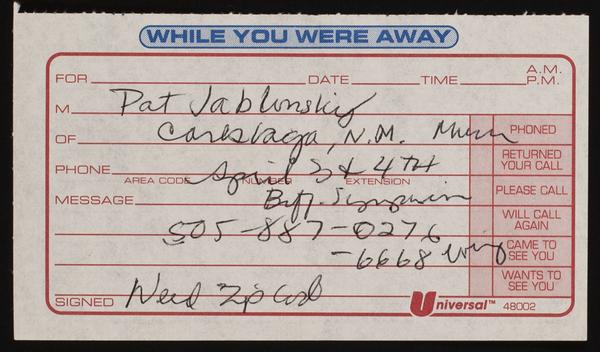 WHILE YOU WERE AWAY
FOR DATE TIME A.M. P.M.
M Pat Jablonsky
OF N.M.
PHONED
RETURNED YOUR CALL
PHONE April 3 & 4TH
AREA CODE NUMBER EXTENSION
PLEASE CALL
MESSAGE
WILL CALL AGAIN
505-887-0276
CAME TO SEE YOU
-6668
WANTS TO SEE YOU
SIGNED Need Zip Cod
Universal™ 48002